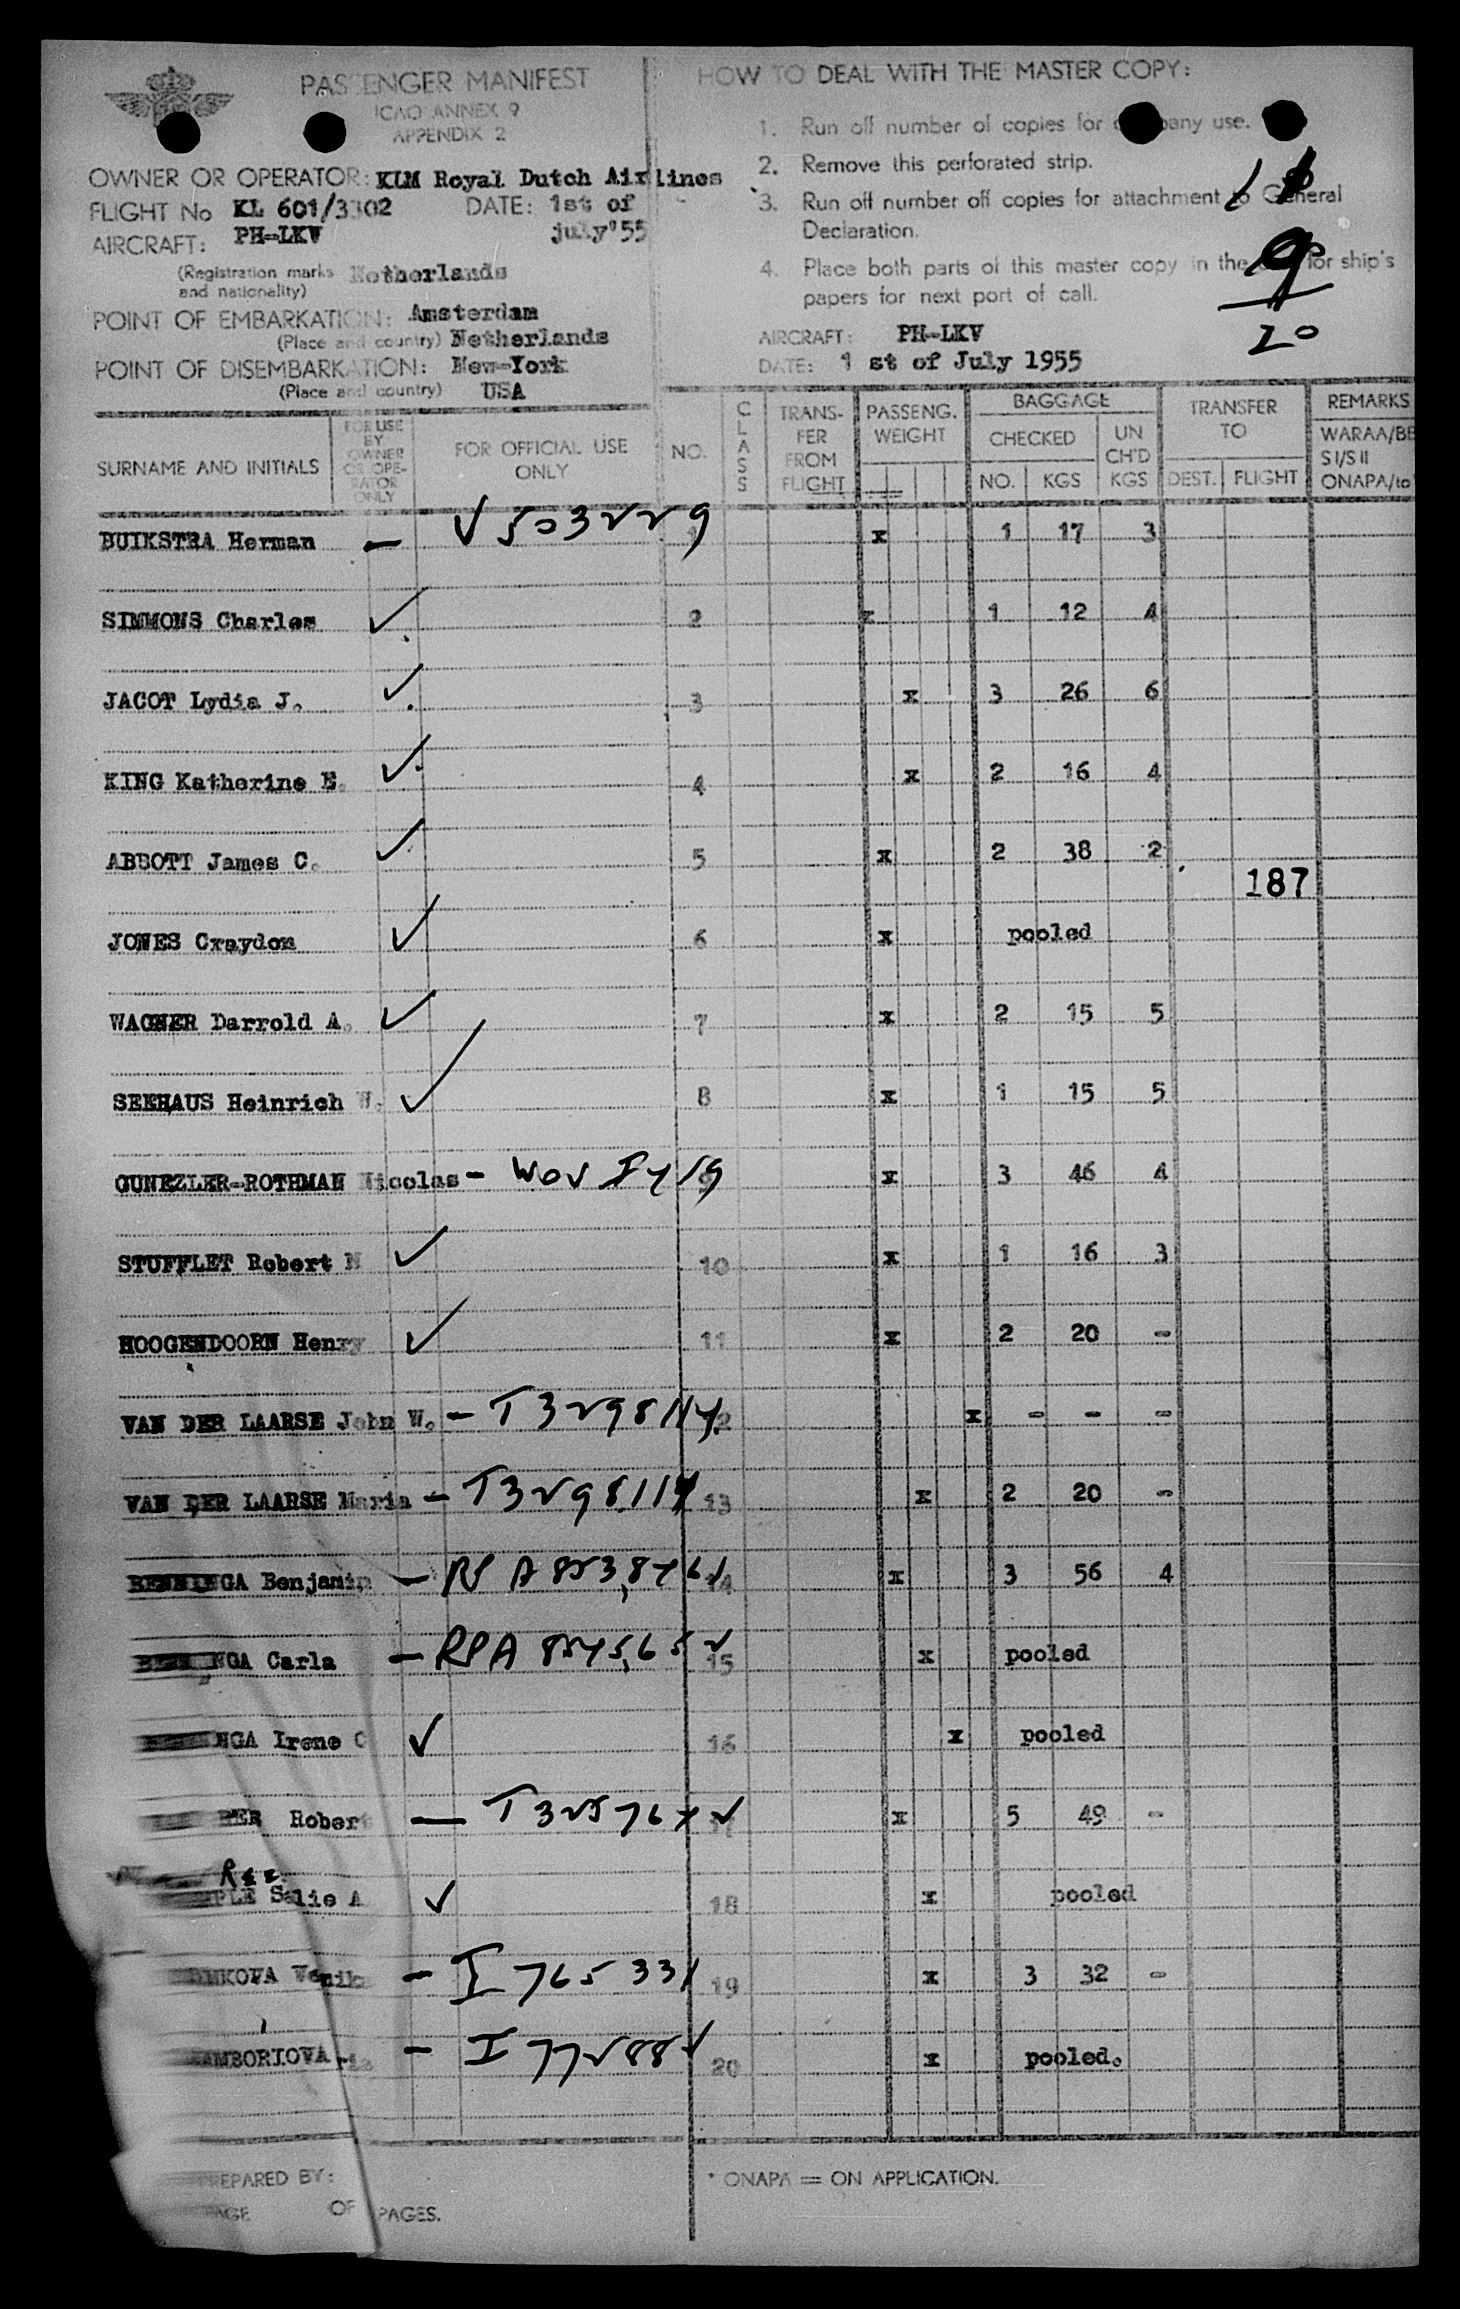 PASSENGER MANIFEST
ICAO ANNEX 9
APPENDIX 2
OWNER OR OPERATOR: KLM Royal Dutch Airlines
FLIGHT No KL 601/3302 DATE: 1st of july'55
AIRCRAFT: PH-LKV
(Registration marks and nationality) Netherlands
POINT OF EMBARKATION: Amsterdam
(Place and country) Netherlands
POINT OF DISEMBARKATION: New-York
(Place and country) USA
HOW TO DEAL WITH THE MASTER COPY:
1. Run off number of copies for company use.
2. Remove this perforated strip.
3. Run off number off copies for attachment to General
Declaration.
4. Place both parts of this master copy in the for ship's
papers for next port of call.
AIRCRAFT: PH-LKV
DATE: 1 st of July 1955
11
9
20
SURNAME AND INITIALS
FOR USE BY OWNER OR OPERATOR ONLY
FOR OFFICIAL USE ONLY
NO.
CLASS
TRANSFER FROM FLIGHT
PASSENG. WEIGHT
BAGGAGE
CHECKED
NO. KGS
UN CH'D KGS
TRANSFER TO
DEST. FLIGHT
REMARKS
WARAA/BB
SI/SII
ONAPA/to
BUIKSTRA Herman - V503229 1 x 1 17 3
SIMMONS Charles ✓ 2 x 1 12 4
JACOT Lydia J. ✓ 3 x 3 26 6
KING Katherine E. ✓ 4 x 2 16 4
ABBOTT James C. ✓ 5 x 2 38 2
187
JONES Craydon ✓ 6 x pooled
WAGNER Darrold A. ✓ 7 x 2 15 5
SEEHAUS Heinrich W. ✓ 8 x 1 15 5
GUNEZLER-ROTHMAN Nicolas - 9 x 3 46 4
STUFFLET Robert N ✓ 10 x 1 16 3
HOOGENDOORN Henry ✓ 11 x 2 20 -
VAN DER LAARSE John W. - T3298114 12 x - - -
VAN DER LAARSE Maria - T329811 13 x 2 20 -
BENNINGA Benjamin - 14 x 3 56 4
NGA Carla - RPA 15 x pooled
NGA Irene C ✓ 16 x pooled
BER Robert - 17 x 5 49 -
PLE Salie A ✓ 18 x pooled
NKOVA - I 765331 19 x 3 32 -
AMBORIOVA ria - I 772884 20 x pooled.
PREPARED BY:
PAGE OF PAGES.
* ONAPA = ON APPLICATION.